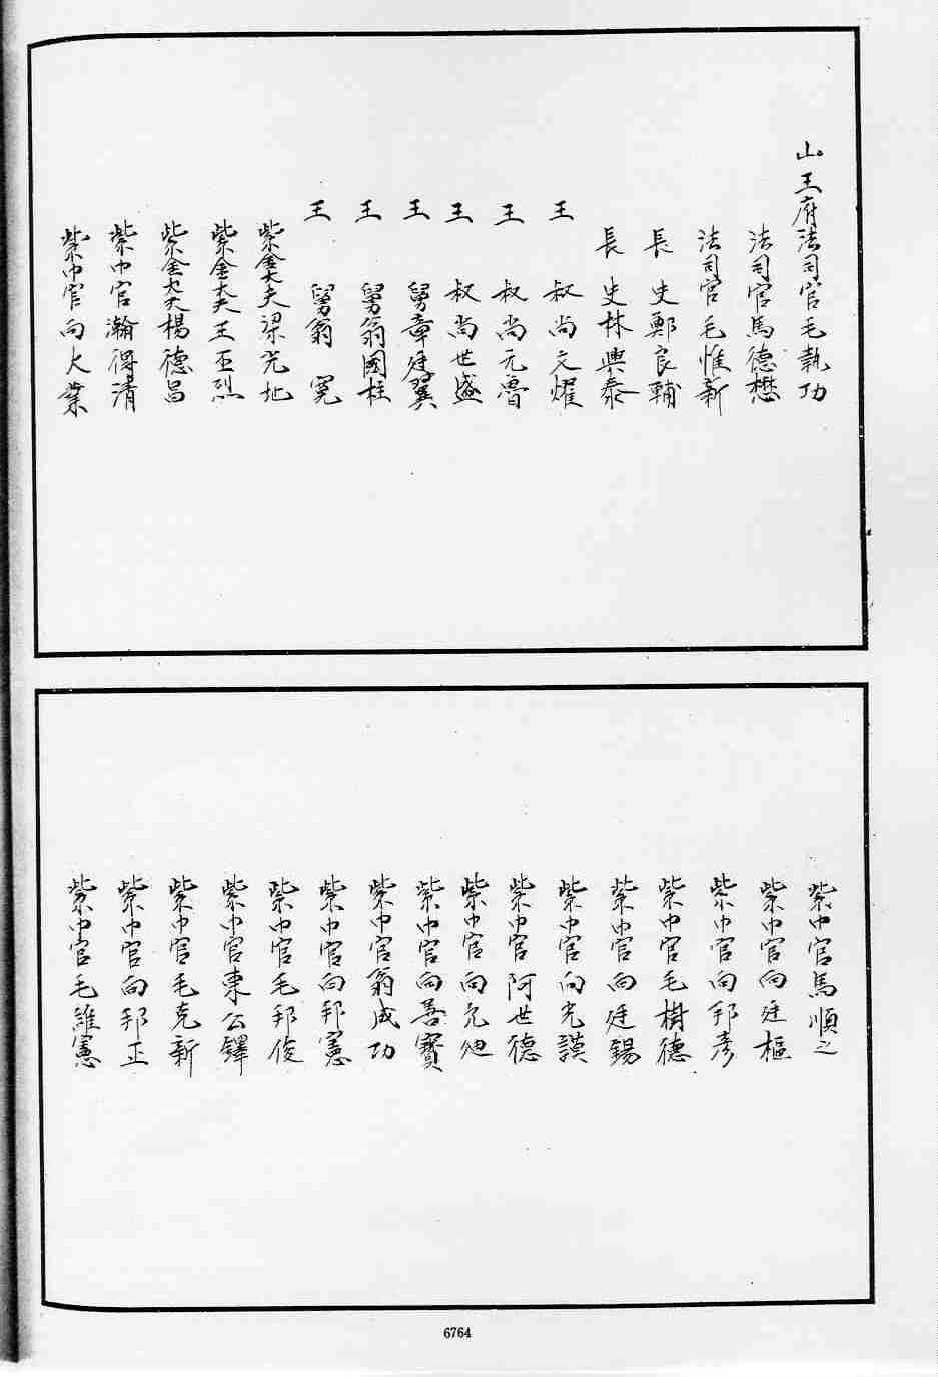 山王府法司官毛執功
法司官馬德懋
法司官毛惟新
長史鄭良輔
長史林興泰
王叔尚文耀
王叔尚元魯
王叔尚世盛
王舅章廷翼
王舅翁國柱
王舅翁寬
紫金大夫梁光地
紫金大夫王丕烈
紫金大夫楊德昌
紫巾官瀚得清
紫巾官向大業
紫巾官馬順之
紫巾官向廷樞
紫巾官向邦彥
紫巾官毛樹德
紫巾官向廷錫
紫巾官向光謨
紫巾官阿世德
紫巾官向允迪
紫巾官向善寶
紫巾官翁成功
紫巾官向邦憲
紫巾官毛邦俊
紫巾官東公鐸
紫巾官毛克新
紫巾官向邦正
紫巾官毛維憲
6764